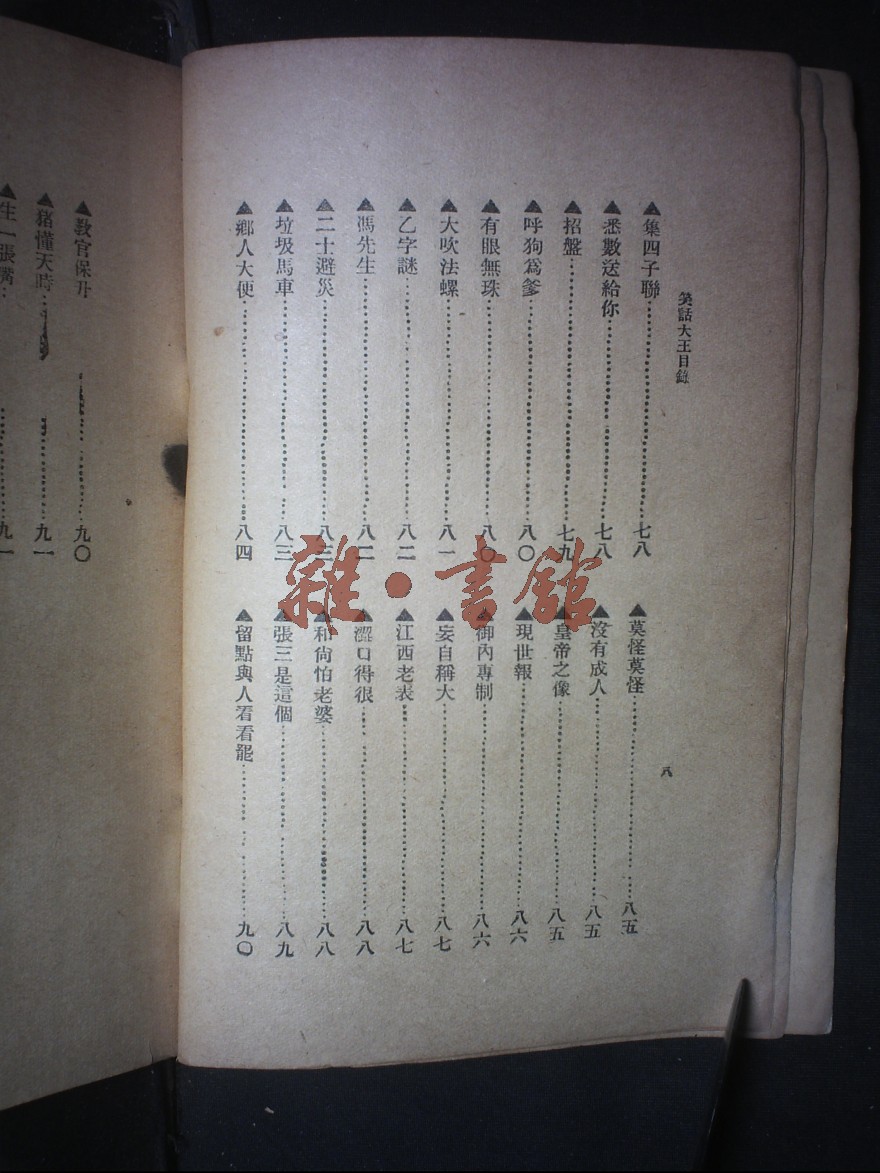 笑話大王目錄
▲集四子聯……七八
▲悉數送給你……七八
▲招盤……七九
▲呼狗爲爹……八〇
▲有眼無珠……八〇
▲大吹法螺……八一
▲乙字謎……八二
▲馮先生……八二
▲二士避災……八三
▲垃圾馬車……八三
▲鄉人大便……八四
▲莫怪莫怪……八五
▲沒有成人……八五
▲皇帝之像……八五
▲現世報……八六
▲御內專制……八六
▲妄自稱大……八七
▲江西老表……八七
▲澀口得很……八八
▲和尙怕老婆……八八
▲張三是這個……八九
▲留點與人看看罷……九〇
八
▲敎官保升……九〇
▲豬懂天時……九一
▲生一張嘴……九一
雜·書館